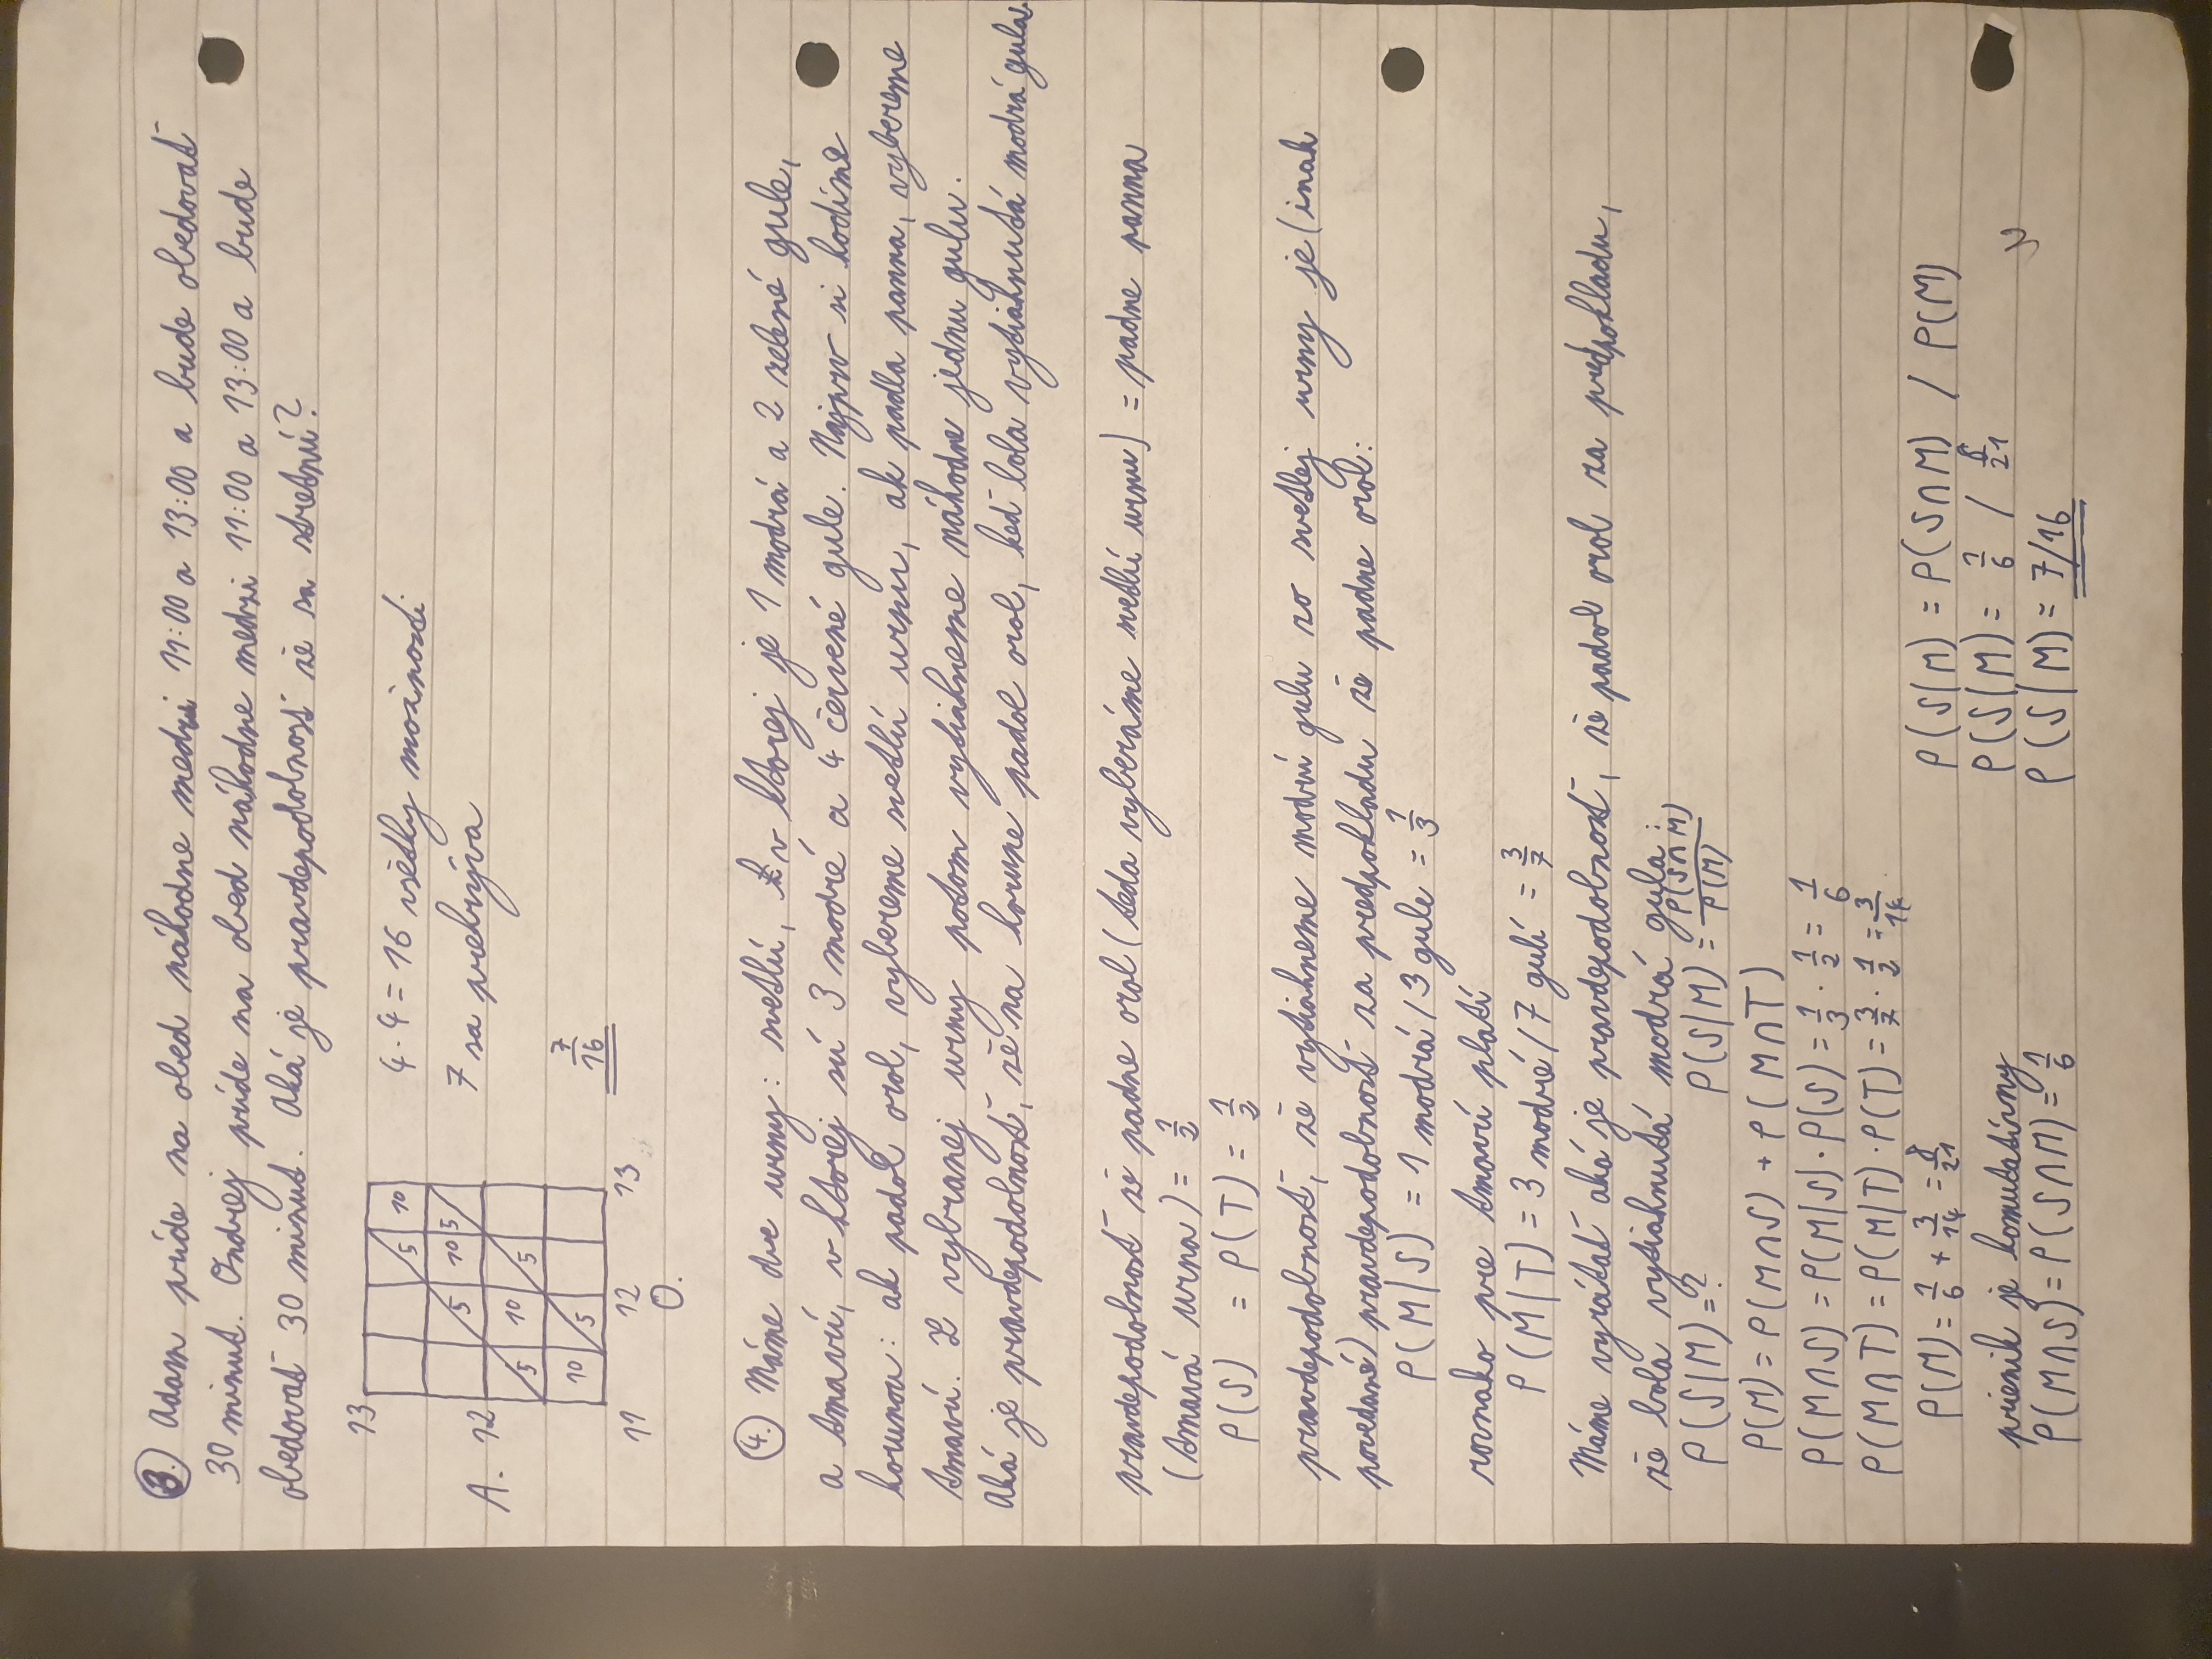 3. Adam príde na obed náhodne medzi 11:00 a 13:00 a bude obedovať
30 minut. Ondrej príde na obed náhodne medzi 11:00 a 13:00 a bude
obedovať 30 minut. Aká je pravdepodobnosť že sa stretnú?
13
5 10
4 · 4 = 16 všetky možnosti
5 10 5
7 sa prekrýva
A. 12
5 10 5
10 5
7/16
11 12 13
O.
4. Máme dve urny: svetlú, v ktorej je 1 modrá a 2 zelené gule,
a tmavú, v ktorej sú 3 modré a 4 červené gule. Najprv si hodíme
korunou: ak padol orol, vybereme svetlú urnu, ak padla panna, vybereme
tmavú. Z vybranej urny potom vytiahneme náhodne jednu gulu.
Aká je pravdepodobnosť, že na korune padol orol, keď bola vytiahnutá modrá gula.
pravdepodobnosť že padne orol (teda vyberáme svetlú urnu) = padne panna
(tmavá urna) = 1/2
P(S) = P(T) = 1/2
pravdepodobnosť, že vytiahneme modrú gulu zo svetlej urny je (inak
povedané) pravdepodobnosť za predpokladu že padne orol:
P(M|S) = 1 modrá / 3 gule = 1/3
rovnako pre tmavú platí
P(M|T) = 3 modré / 7 gulí = 3/7
Máme vyrátať aká je pravdepodobnosť, že padol orol za predpokladu,
že bola vytiahnutá modrá gula:
P(S|M) = ? P(S|M) = P(S∩M)/P(M)
P(M) = P(M∩S) + P(M∩T)
P(M∩S) = P(M|S) · P(S) = 1/3 · 1/2 = 1/6
P(M∩T) = P(M|T) · P(T) = 3/7 · 1/2 = 3/14
P(M) = 1/6 + 3/14 = 8/21
prienik je komutatívny
P(M∩S) = P(S∩M) = 1/6
P(S|M) = P(S∩M) / P(M)
P(S|M) = 1/6 / 8/21
P(S|M) = 7/16